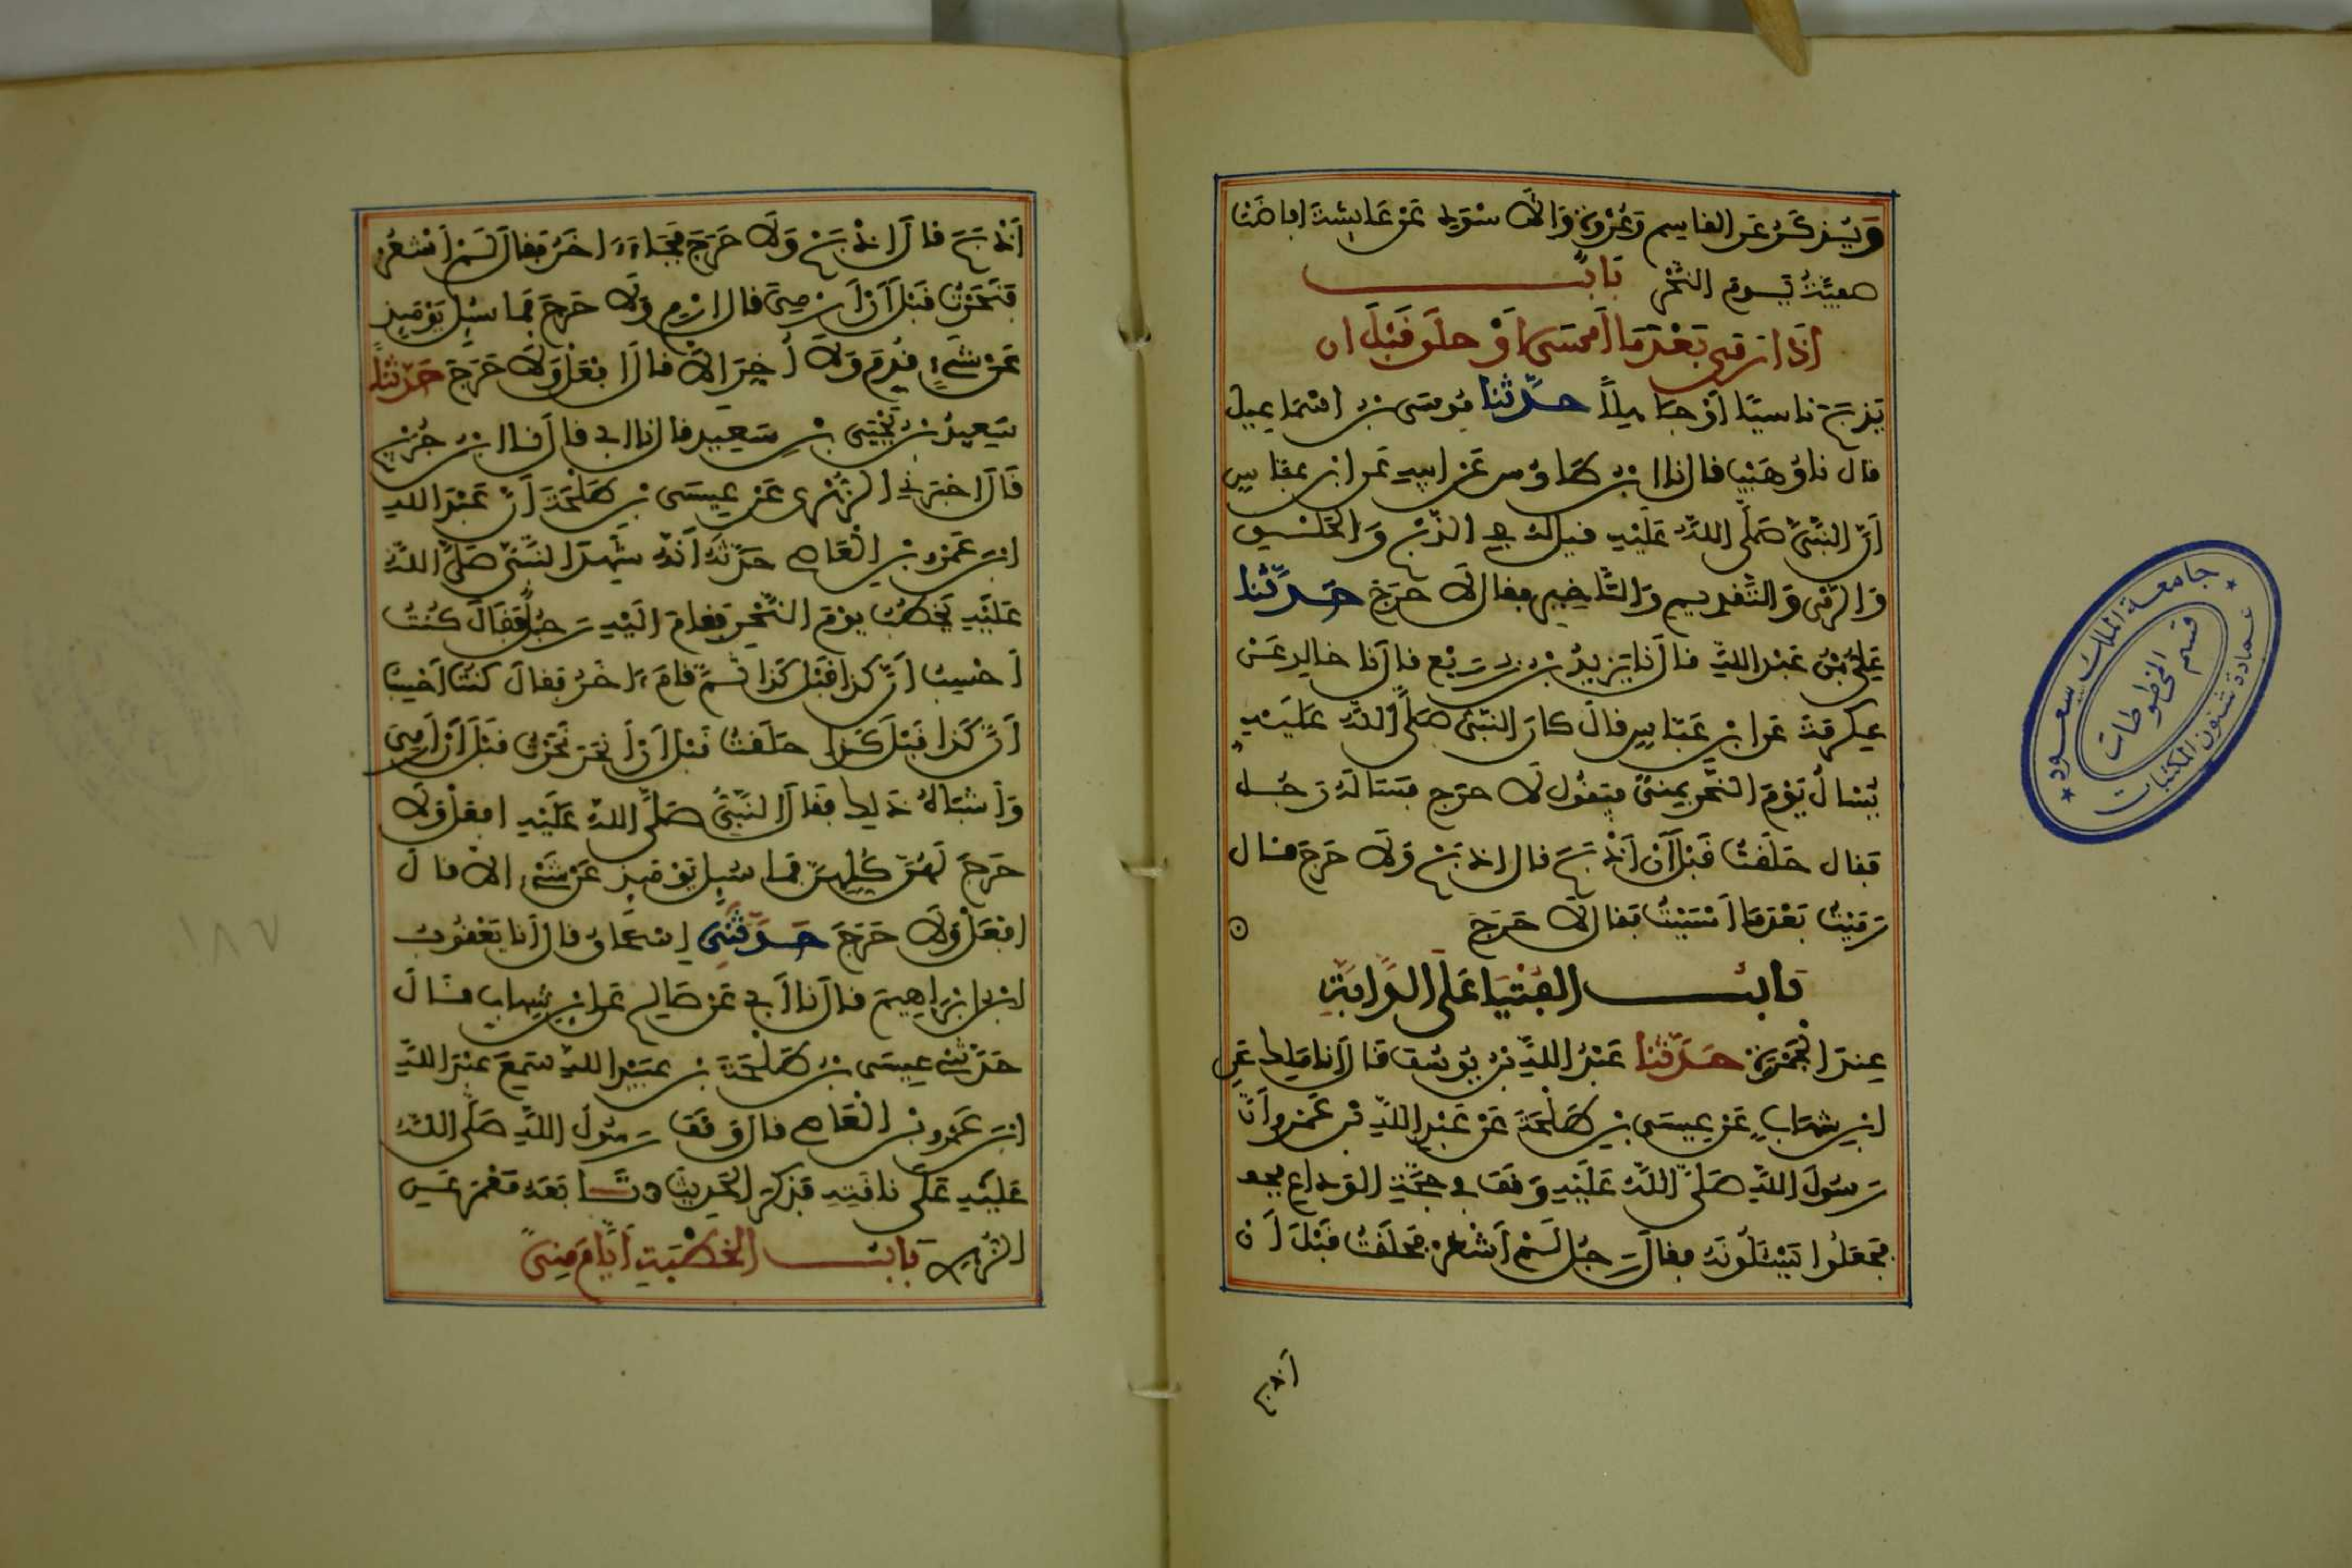 وَيُذكَرُ عَنِ القاسِمِ وَعُرْوَةَ وَالأَسْوَدِ عَنْ عَائِشَةَ افاضَتْ
صَفِيَّةُ يَوْمَ النَّحْرِ بَابٌ
اِذَا رَمَى بَعْدَمَا أَمْسَى أَوْ حلَقَ قَبْلَ ان
يَذبَحَ نَاسيًا أَوْ جَاهِلًا حَدَّثنا مُوسَى بن اسْمَاعِيل
قال نا وُهَيْبٌ قال نا ابن طَاوُس عَنْ ابِيهِ عَن ابن عبّاسٍ
أَنَّ النَّبِيَّ صَلَّى اللَّهُ عَلَيْهِ قيلَ لهُ فِي الذَّبْحِ وَالحَلْقِ
وَالرَّمْيِ وَالتَّقدِيمِ وَالتَّاخِيرِ فقال لاَ حَرَجَ حَدَّثَنا
عَلِيُّ بْنُ عَبْدِ اللَّهِ قالَ نا يَزِيدُ بن زُرَيْعٍ قالَ نا خالِد عَنْ
عِكرِمَةَ عَن ابنِ عَبّاسٍ قالَ كانَ النَّبِيُّ صَلَّى اللَّهُ عَلَيْهِ
يُسْالُ يَوْمَ النَّحْرِ بِمِنىً فيَقُول لاَ حرَج فسَالَهُ رَجُل
فقال حَلَقْتُ قَبْلَ أَنْ أَذْبَحَ قال اذبَحْ وَلاَ حَرَجَ قال
رَمَيْتُ بَعْدَمَا أَمْسَيْتُ فقال لاَ حَرَجَ
بَابُ الفُتْيَا عَلَى الدَّابَّةِ
عِندَ الجَمْرَةِ حَدَّثنا عَبْدُ اللَّهِ بن يُوسُف قَالَ أنا مَالِك عَنِ
ابنِ شِهَابٍ عَنْ عِيسَى بنِ طَلْحَةَ عَنْ عَبْدِ اللَّهِ بْنِ عَمْرو أَنَّ
رَسُولَ اللَّهِ صَلَّى اللَّهُ عَلَيْهِ وَقَفَ فِي حَجَّةِ الوَدَاع
فَجَعَلُوا يَسْئَلُونَهُ فقالَ رَجُل لَمْ أَشْعُرْ فحَلَقْتُ قَبْلَ أَنْ
أَذبَحَ
أَذْبَحَ قالَ اذْبَحْ وَلاَ حَرَجَ فَجَاءَ ءاخَرُ فقالَ لَمْ أَشْعُرْ
فَنَحَرْتُ قَبْلَ أَنْ أَرْمِيَ قال ارْمِ وَلاَ حَرَجَ فما سُئِل يَوْمَئِذٍ
عَنْ شَيْءٍ قُدِّمَ وَلاَ أُخِّرَ الاّ قالَ افْعَلْ وَلاَ حَرَجَ حَدَّثنا
سَعِيدُ بن يَحْيَى بْنِ سَعِيدٍ قال نا ابي قالَ نا ابن جُرَيْجٍ
قَالَ اخبَرَنِي الزُّهْرِي عَنْ عِيسَى بنِ طَلْحَةَ أَنَّ عَبْدَ اللهِ
ابنَ عَمْرِو بنِ الْعَاصِ حَدَّثَهُ أَنَّهُ شَهِدَ النَّبِيَّ صَلَّى اللَّهُ
عَلَيْهِ يَخْطُبُ يَوْمَ النَّحْرِ فقامَ الَيْهِ رَجُلٌ فَقَالَ كُنْتُ
أَحْسِبُ أَنَّ كذا قَبْلَ كَذا ثُمَّ قامَ ءاخَرُ فقالَ كُنْتُ أَحْسِبُ
أَنَّ كَذا قَبْلَ كَذا حَلَقْتُ قَبْلَ أَنْ أَنْحَرَ نَحَرْتُ قبْلَ أَنْ أَرْمِيَ
وَأَشبَاهُ ذَلِكَ فقالَ النَّبِيُّ صَلَّى اللهُ عَلَيْهِ افعَلْ وَلاَ
حَرَجَ لَهُنَّ كُلِّهِنَّ فَما سُئِلَ يَوْمَئِذٍ عَنْ شَيْءٍ الاّ قالَ
افعَلْ وَلاَ حَرَجَ حَدَّثَنِي اِسْحَاق قالَ أنا يَعْقُوبُ
ابن ابْرَاهِيمَ قالَ نا أَبِي عَنْ صَالِح عَنِ ابْنِ شِهَابٍ قالَ
حَدَّثنِي عِيسَى بن طَلْحَةَ بن عُبَيْدِ اللهِ سَمِعَ عَبْدَ اللَّهِ
ابنَ عَمْرو بْن الْعَاصِ قال وَقَفَ رَسُولُ اللَّهِ صَلَّى اللَّهُ
عَلَيْهِ عَلَى نَاقَتِهِ فَذكَرَ الحَدِيثَ وتَابَعَهُ مَعْمَر عَنِ
الزُّهْرِي بَابُ الخُطْبَةِ أَيَّامَ مِنىً
جامعة الملك سعود
قسم المخطوطات
عمادة شئون المكتبات
١٨٧